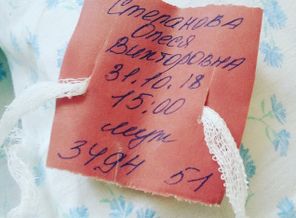 Степанова
Олеся
Викторовна
31.10.18
15:00
муж
3490 51